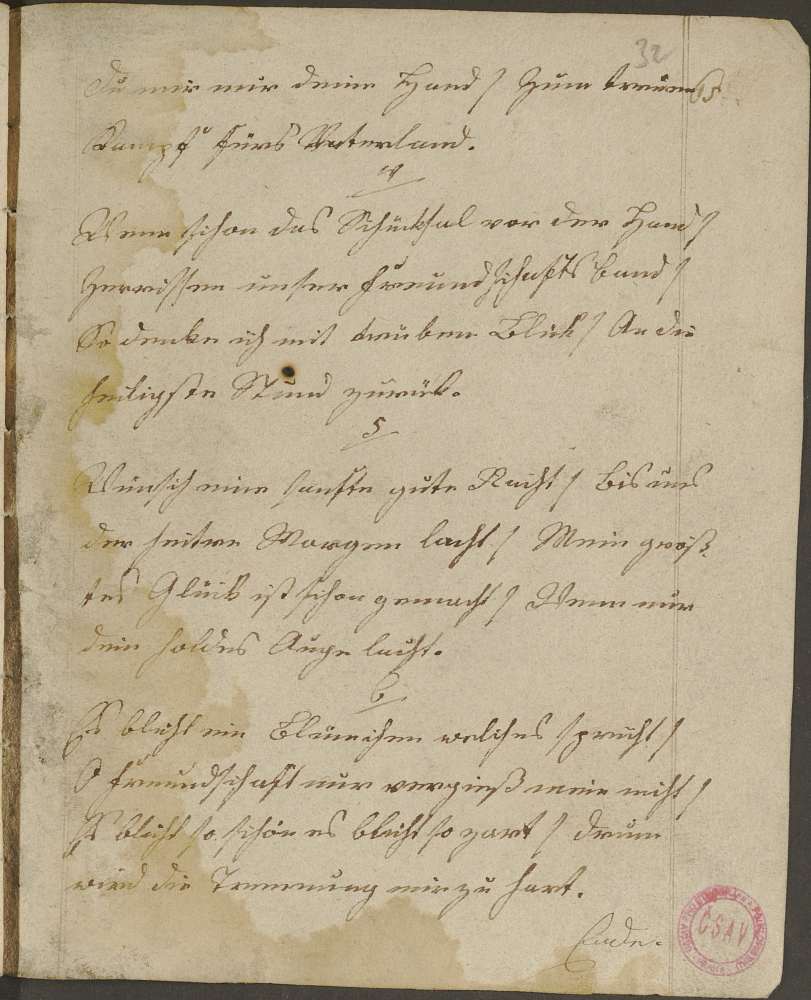 32
du mir nur deine Hand / Zum treuen 15.
Kampf fürs Vaterland.
4
Wenn schon das Schücksal vor der Hand /
Zerrissen unser Freundschafts band /
So denke ich mit trüben Blick / An die
heiligste Stund zurück.
5
Wünsch eine sanfte gute Nacht / bis uns
der heitre Morgen lacht / Mein größ
tes Glück ist schon gemacht / Wenn nur
dein holdes Auge lacht.
6
Es blüht ein Blümchen welches spricht /
O Freundschaft nur vergieß mein nicht /
Es blüht so schön es blüht so zart / drum
wird die Trennung mir zu hart.
Ende.
ČSAV